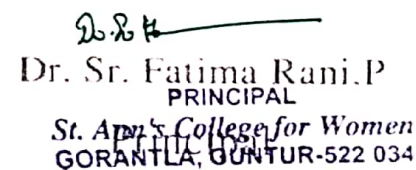 Dr. Sr. Fatima Rani.P
PRINCIPAL
St. Ann's College for Women
GORANTLA, GUNTUR-522 034